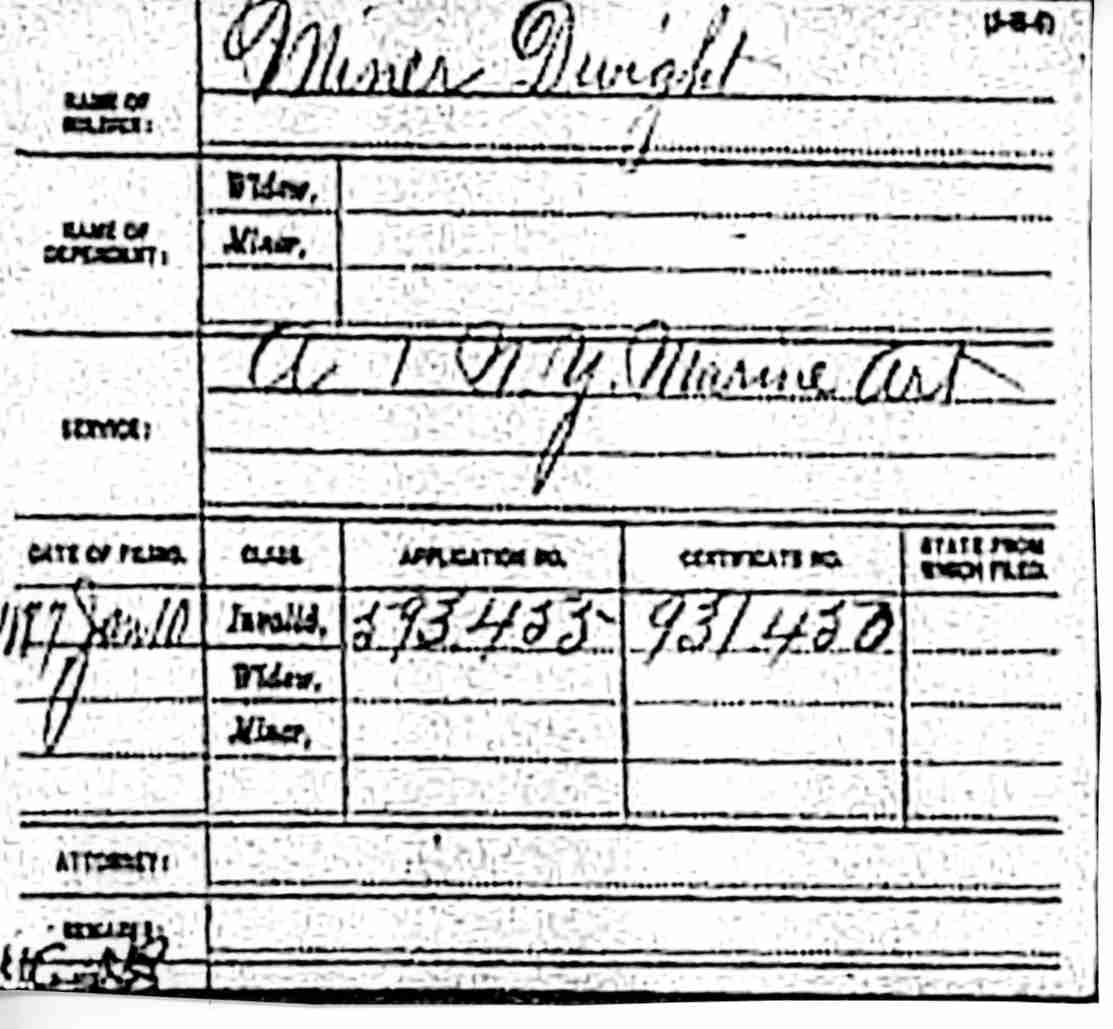 (3-8-4)
Miner Dwight
NAME OF
SOLDIER:
NAME OF
DEPENDENT:
Widow,
Minor,
SERVICE:
A 1 N.Y. Marine Art
DATE OF FILING. CLASS. APPLICATION NO. CERTIFICATE NO. STATE FROM
WHICH FILED.
Jan 10 Invalid, 593.435 931.430
Widow,
Minor,
ATTORNEY:
REMARKS: